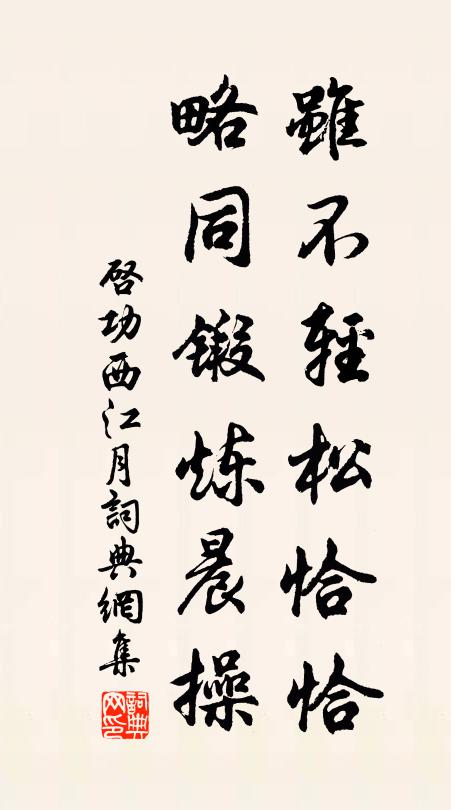 雖不輕松恰恰
略同鍛炼晨操
啓功西江月詞典網集
詞典网印